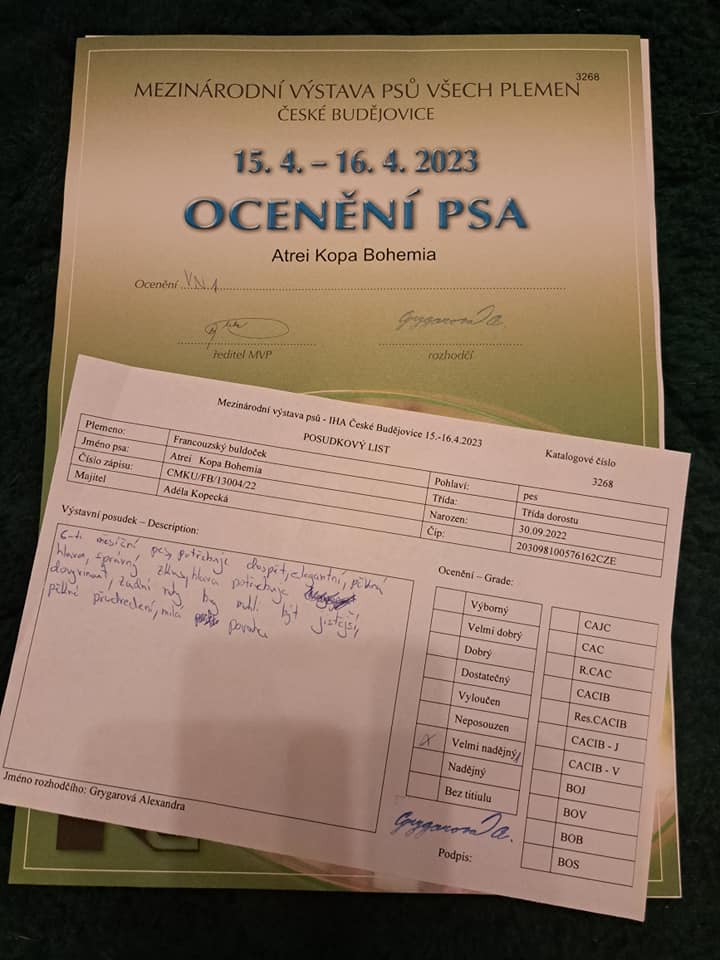 3268
MEZINÁRODNÍ VÝSTAVA PSŮ VŠECH PLEMEN
ČESKÉ BUDĚJOVICE
15. 4. – 16. 4. 2023
OCENĚNÍ PSA
Atrei Kopa Bohemia
Ocenění VN 1
Grygarová A.
ředitel MVP
rozhodčí
Mezinárodní výstava psů - IHA České Budějovice 15.-16.4.2023
POSUDKOVÝ LIST
Katalogové číslo
3268
Plemeno: Francouzský buldoček
Jméno psa: Atrei Kopa Bohemia
Číslo zápisu: CMKU/FB/13004/22
Majitel Adéla Kopecká
Pohlaví: pes
Třída: Třída dorostu
Narozen: 30.09.2022
Čip: 203098100576162CZE
Výstavní posudek – Description:
6-ti měsíční pes, potřebuje dospět, elegantní, pěkná
hlava, správný zkus, hlava potřebuje
dovyvinout, zadní nohy by mohli být jistější,
pěkné předhrudí, milá povaha
Ocenění – Grade:
Výborný
Velmi dobrý
Dobrý
Dostatečný
Vyloučen
Neposouzen
X Velmi nadějný 1
Nadějný
Bez titulu
CAJC
CAC
R.CAC
CACIB
Res.CACIB
CACIB - J
CACIB - V
BOJ
BOV
BOB
BOS
Jméno rozhodčího: Grygarová Alexandra
Grygarová A.
Podpis: